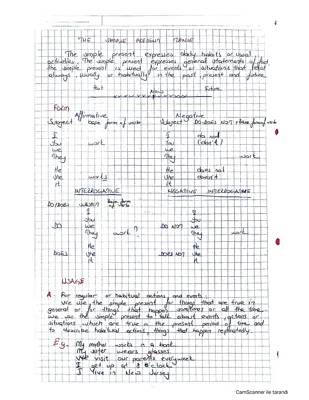 THE SIMPLE PRESENT TENSE
The simple present expresses daily habits or usual
activities. The simple present expresses general statements of fact.
the simple present is used for events or situations that exist
always, usually or habitually in the past, present and future.
Past Now Future
Form
Affirmative Negative
Subject base form of verb Subject DO-DOES NOT + base form of verb
I I
You work You do not
We We (don't)
They They work
He He
She works She does not
It It doesn't
INTERROGATIVE NEGATIVE INTERROGATIVE
DO/DOES SUBJECT Base form of verb
I I
You You
DO We work? DO NOT We
They They work?
He He
DOES She DOES NOT She
It It
USAGE
A. For regular or habitual actions and events:
We use the simple present for things that are true in
general or for things that happen sometimes or all the time.
We use the simple present to talk about events, actions or
situations which are true in the present period of time and
to show habitual actions, things that happen repeatedly.
E.g. My mother works in a bank.
My sister wears glasses.
We visit our parents every week.
I get up at 8 o'clock
I live in New Jersey
CamScanner ile tarandı